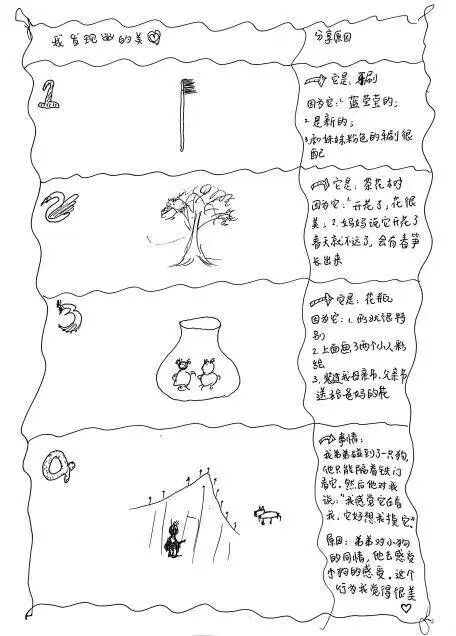 我发现的美
分享原因
1
它是：牙刷
因为它：1.蓝莹莹的；
2.是新的；
3.和妹妹粉色的牙刷很
配
2
它是：茶花树
因为它：1.开花了，花很
美；2.妈妈说它开花了
春天就不远了，会有春笋
长出来
3
它是：花瓶
因为它：1.形状很特
别
2.上面画了两个小人彩
绘
3.装过我母亲节、父亲节
送给爸妈的花
4
事情：
我弟弟碰到了一只狗，
他只能隔着铁门
看它。然后他对我
说：“我感觉它在看
我，它好想我摸它”
原因：弟弟对小狗
的同情，他去感受
小狗的感受。这个
行为我觉得很美